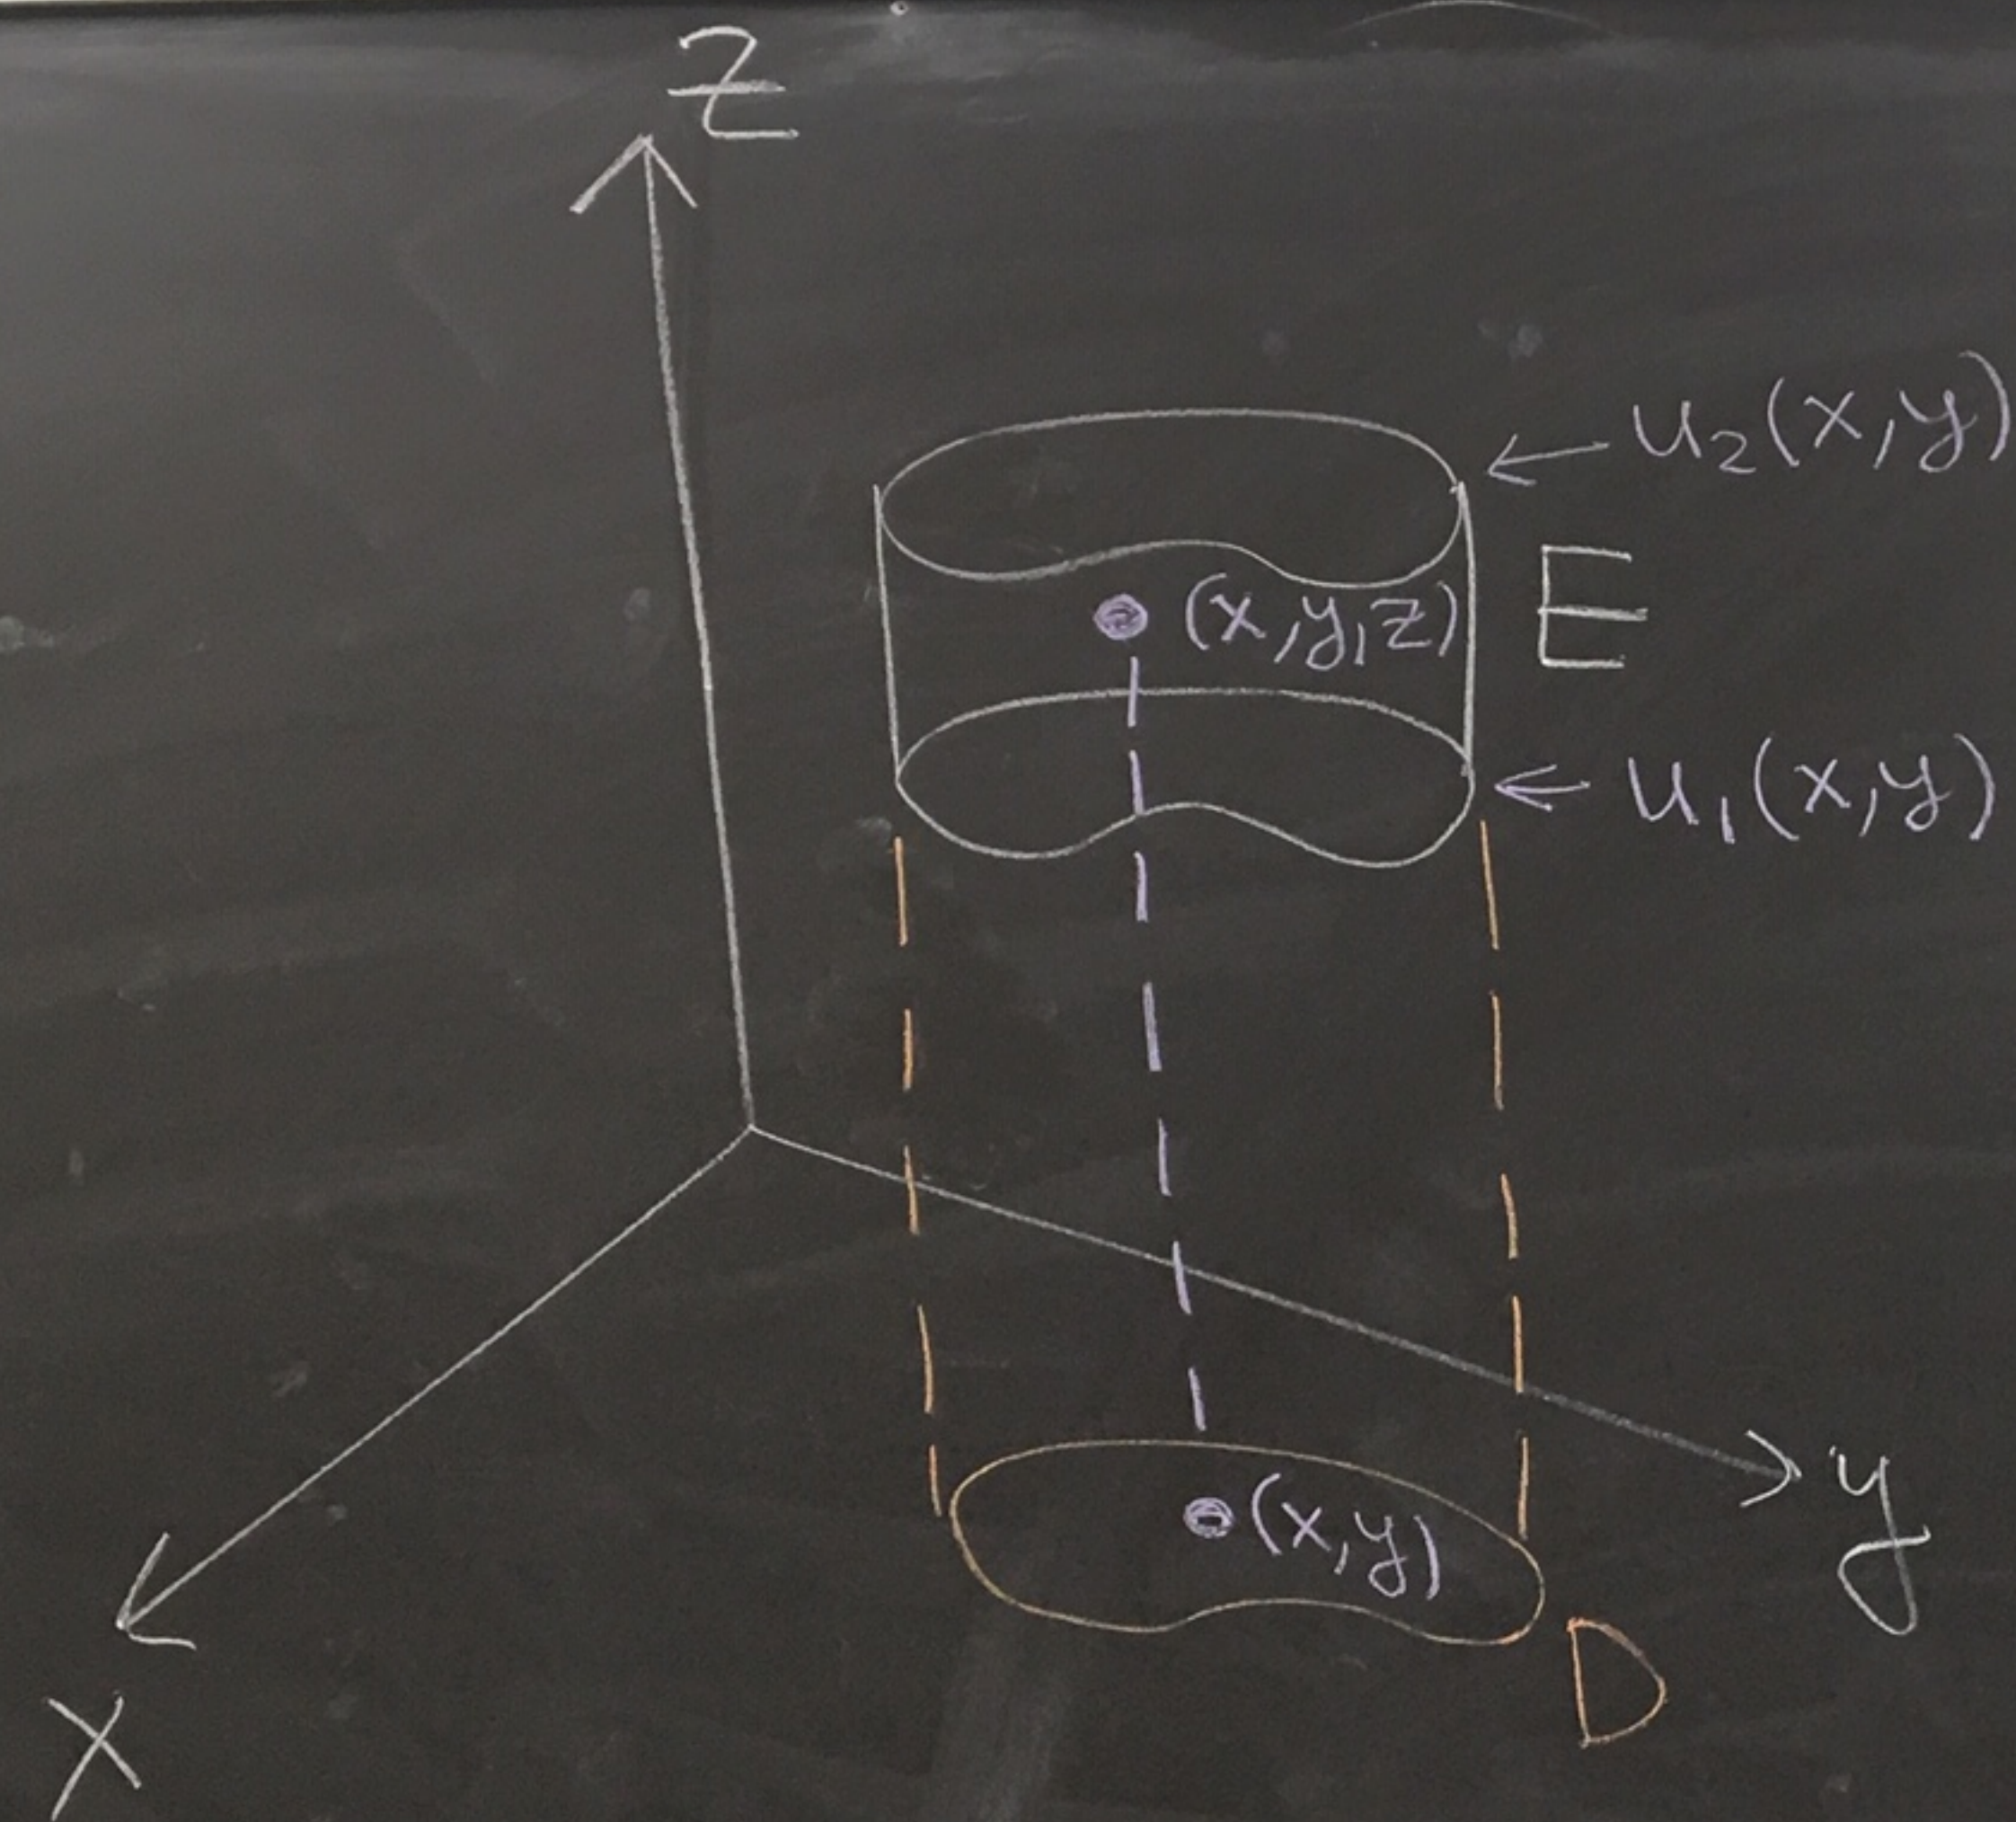 z
u₂(x,y)
E
(x,y,z)
u₁(x,y)
y
(x,y)
D
x